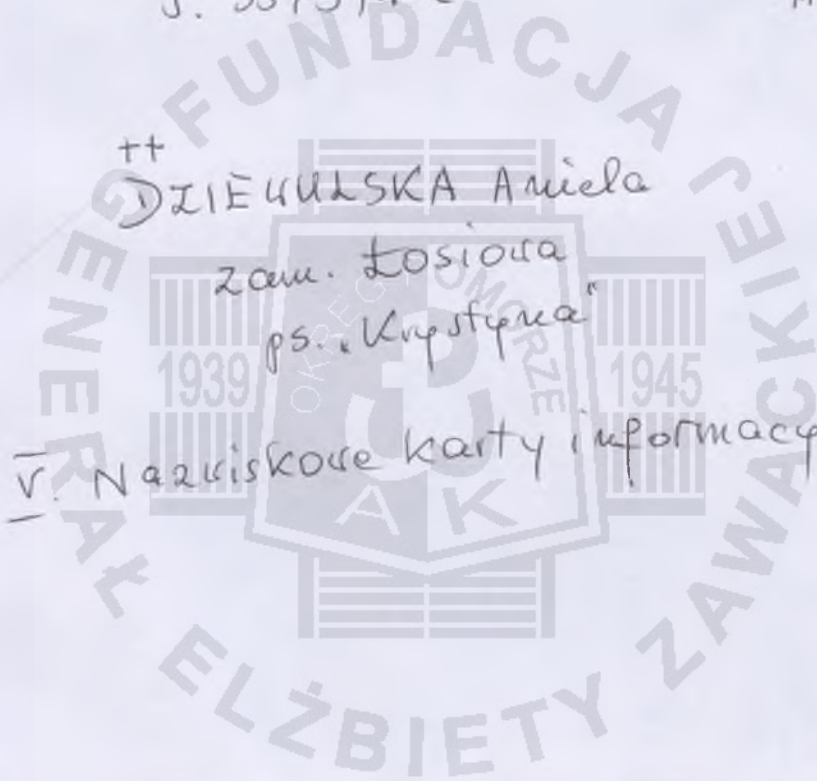 ++
DZIEWULSKA Aniela
zam. Łosiowa
ps. „Krystyna"
V. Nazwiskowe karty informacy
FUNDACJA
GENERAŁ ELŻBIETY ZAWACKIEJ
OKRĘG POMORZE
1939
1945
AK